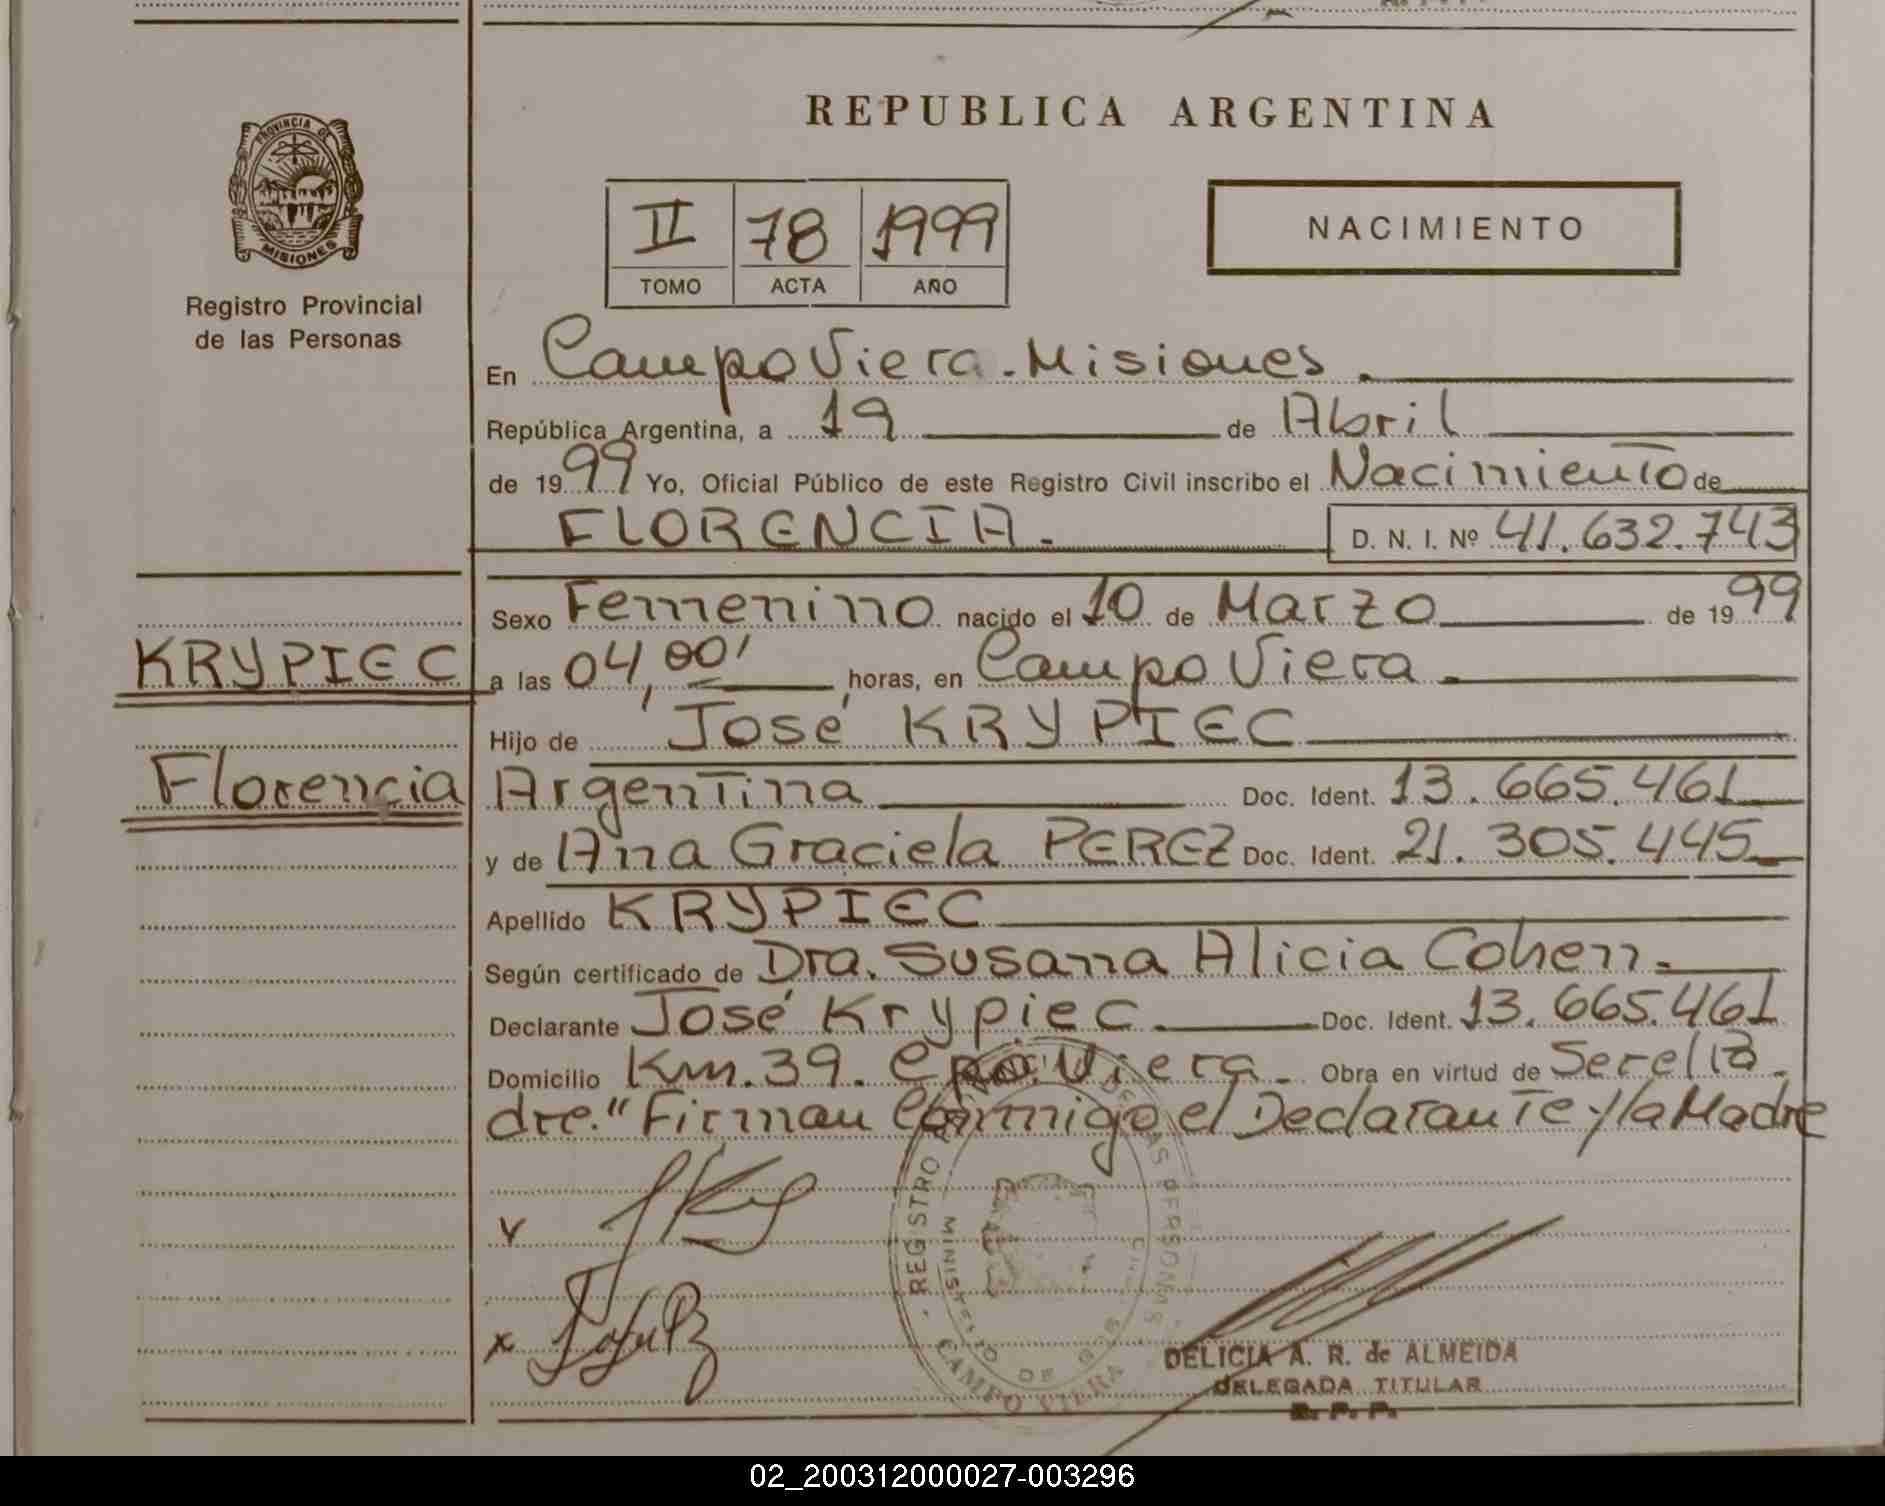 PROVINCIA DE
MISIONES
Registro Provincial
de las Personas
REPUBLICA ARGENTINA
II 78 1999
TOMO ACTA AÑO
NACIMIENTO
En Campo Viera - Misiones.
República Argentina, a 19 de Abril
de 1999 Yo, Oficial Público de este Registro Civil inscribo el Nacimiento de
FLORENCIA.- D. N. I. Nº 41.632.743
Sexo Femenino nacido el 10 de Marzo de 1999
KRYPIEC
a las 04,00' horas, en Campo Viera
Hijo de José KRYPIEC
Florencia
Argentina Doc. Ident. 13.665.461
y de Ana Graciela PEREZ Doc. Ident. 21.305.445
Apellido KRYPIEC
Según certificado de Dra. Susana Alicia Cohen.-
Declarante José Krypiec Doc. Ident. 13.665.461
Domicilio Km. 39. Cpo. Viera - Obra en virtud de Ser el Pa-
dre." Firman Conmigo el Declarante y la Madre
REGISTRO DE LAS PERSONAS
MINISTERIO DE GOB
CAMPO VIERA
DELICIA A. R. de ALMEIDA
DELEGADA TITULAR
R. P. P.
02_200312000027-003296